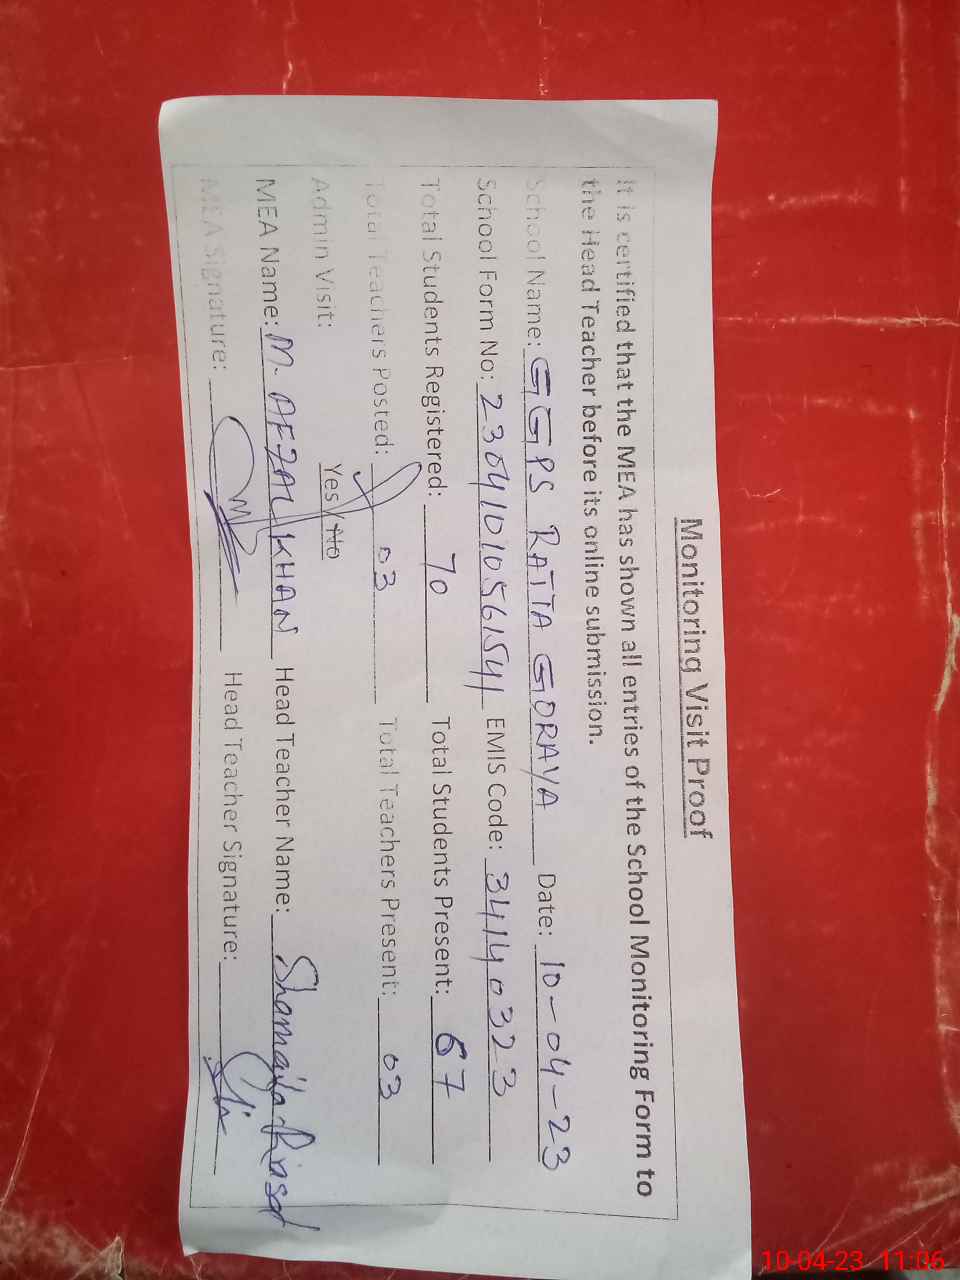 Monitoring Visit Proof
It is certified that the MEA has shown all entries of the School Monitoring Form to
the Head Teacher before its online submission.
School Name: GGPS RATTA GORAYA Date: 10-04-23
School Form No: 23041010561541 EMIS Code: 34140323
Total Students Registered: 70 Total Students Present: 67
Total Teachers Posted: 03 Total Teachers Present: 03
Admin Visit: Yes / No
MEA Name: M. AFZAL KHAN Head Teacher Name: Shamaila
MEA Signature: Head Teacher Signature:
10-04-23 11:06